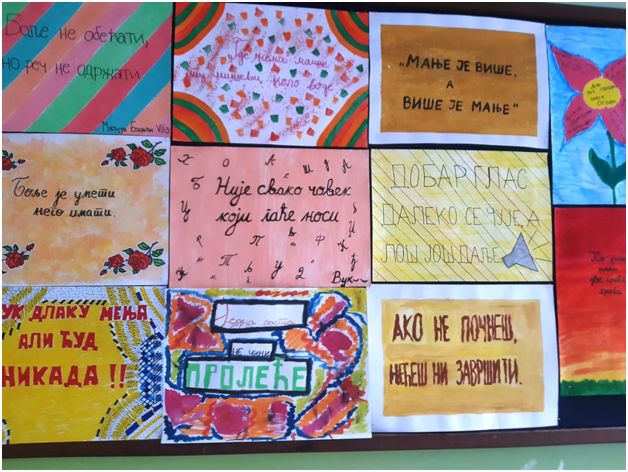 Боље не обећати,
но реч не одржати
Где нема мачке
ту мишеви коло воде
„МАЊЕ ЈЕ ВИШЕ,
А
ВИШЕ ЈЕ МАЊЕ“
Боље је умети
него имати.
Није свако човек
који гаће носи
Вук
ДОБАР ГЛАС
ДАЛЕКО СЕ ЧУЈЕ А
ЛОШ ЈОШ ДАЉЕ
ВУК ДЛАКУ МЕЊА
АЛИ ЋУД
НИКАДА !!
Једна ласта
НЕ ЧИНИ
ПРОЛЕЋЕ
АКО НЕ ПОЧНЕШ,
НЕЋЕШ НИ ЗАВРШИТИ.